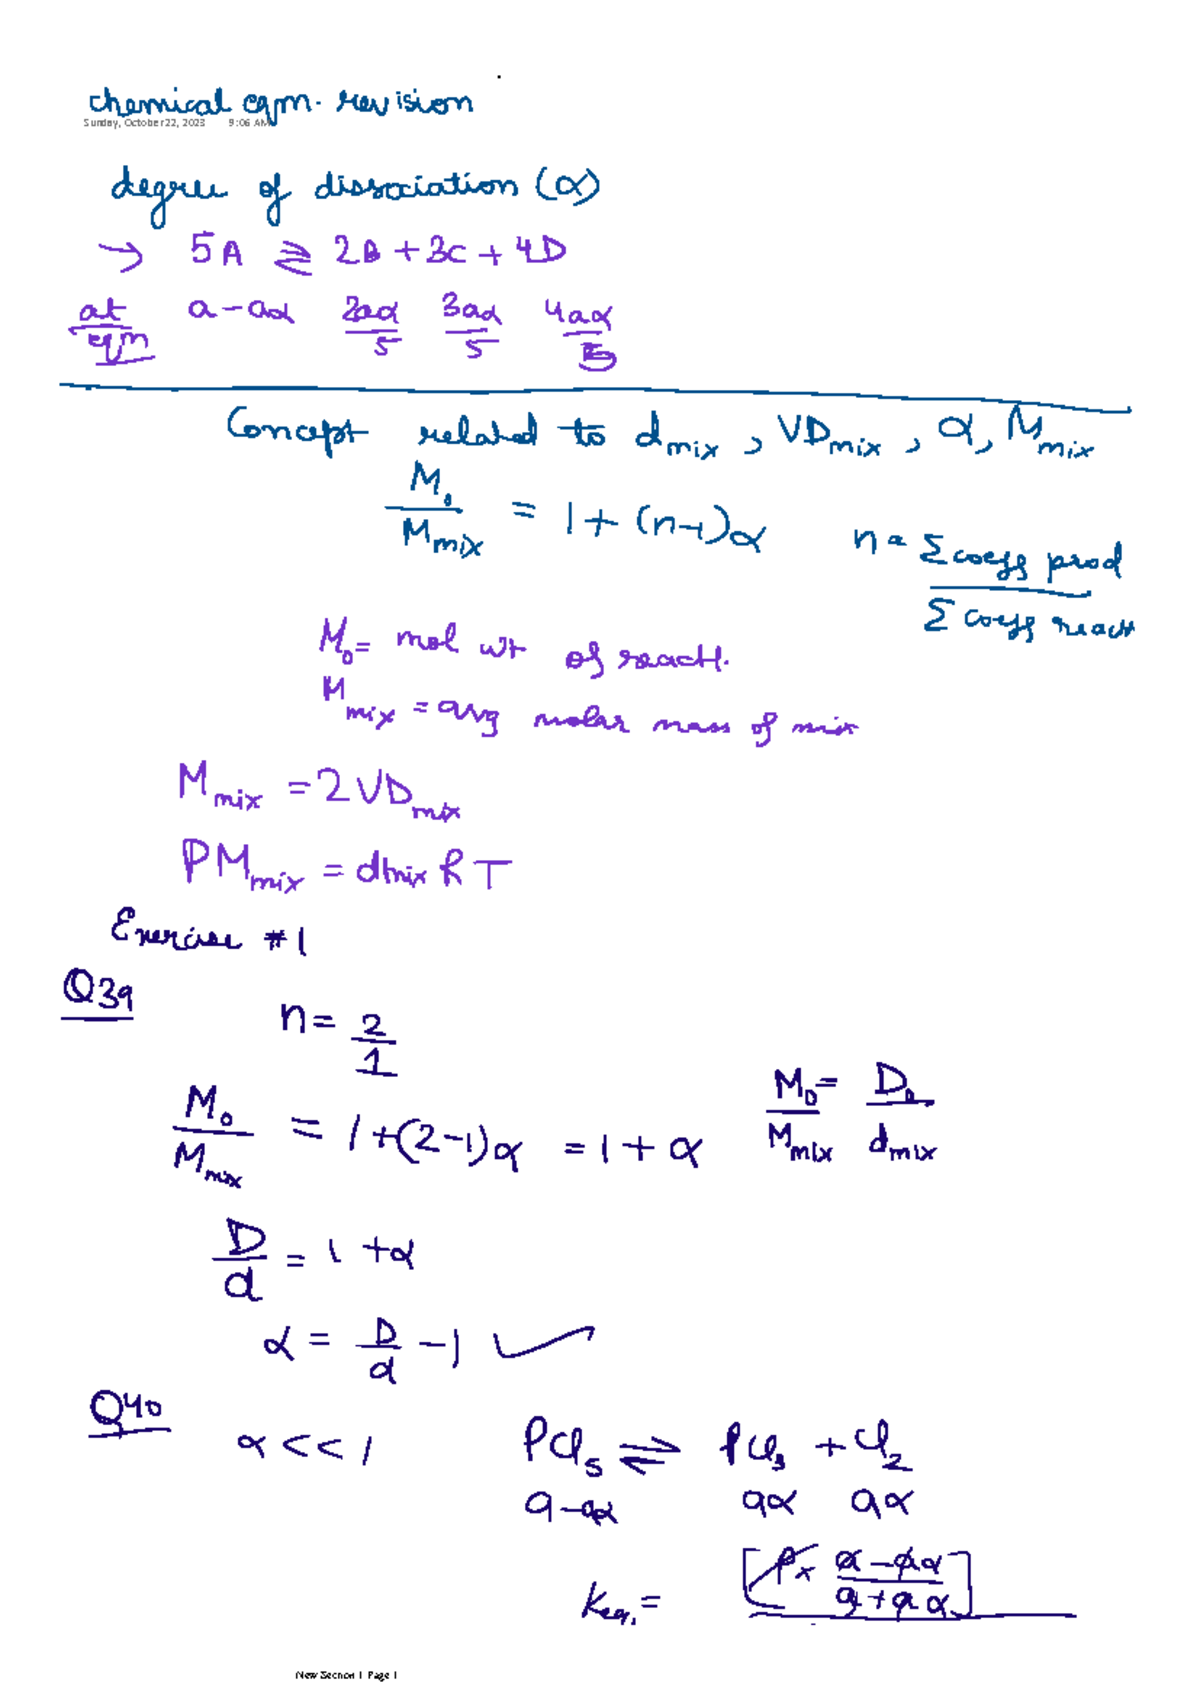 chemical eqm. revision
Sunday, October 22, 2023 9:06 AM
degree of dissociation (α)
→ 5A ⇌ 2B + 3C + 4D
at eqm a - aα 2aα/5 3aα/5 4aα/5
Concept related to d_mix, VD_mix, α, M_mix
M₀/M_mix = 1 + (n-1)α n = Σ coeff prod / Σ coeff react
M₀ = mol wt of react.
M_mix = avg molar mass of mix
M_mix = 2 VD_mix
PM_mix = d_mix RT
Exercise #1
Q39
n = 2/1
M₀/M_mix = 1 + (2-1)α = 1 + α M₀/M_mix = D₀/d_mix
D/d = 1 + α
α = D/d - 1 ✓
Q40
α << 1 PCl₅ ⇌ PCl₃ + Cl₂
a-aα aα aα
Keq. = [P × a-aα/a+aα]
New Section 1 Page 1